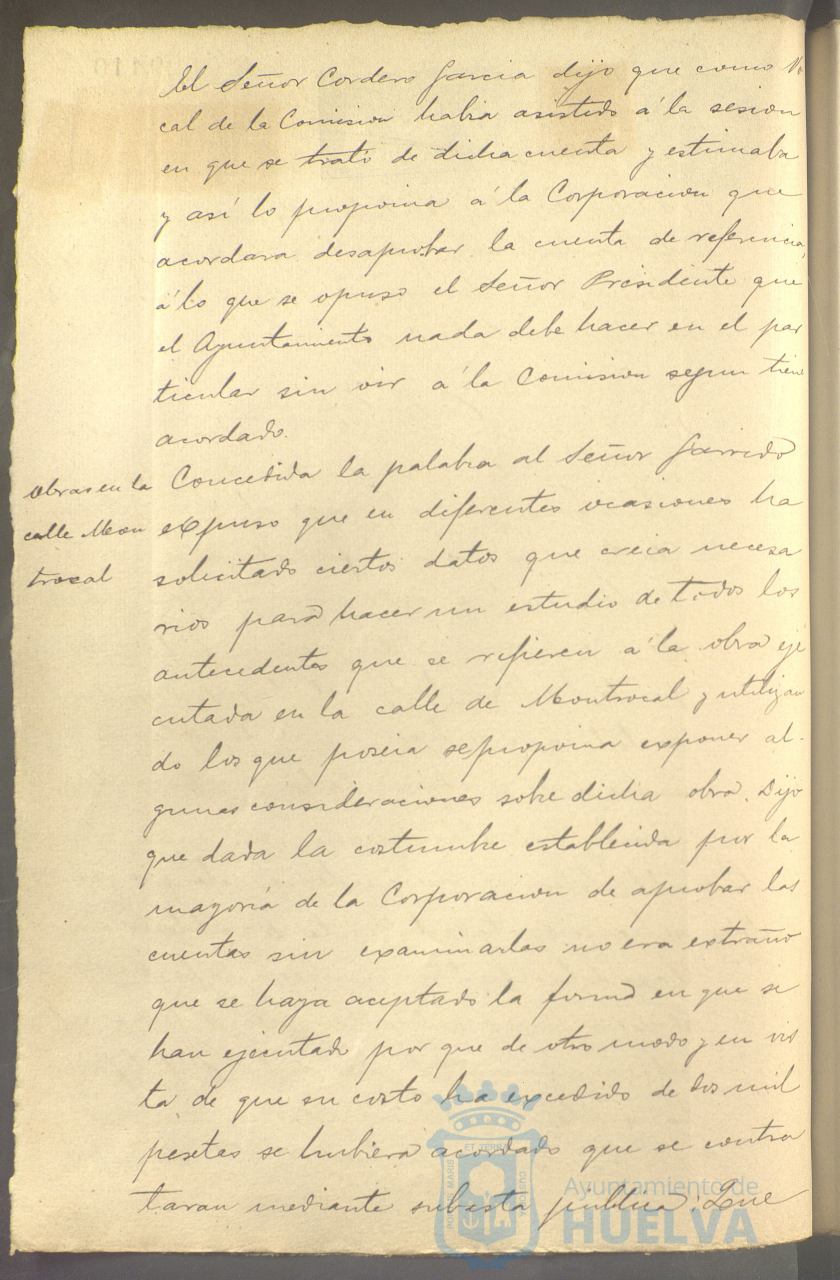 El Señor Cordero Garcia dijo que como Vo
cal de la Comision habia asistido á la sesion
en que se trató de dicha cuenta y estimaba
y así lo proponia á la Corporacion que
acordara desaprobar la cuenta de referencia,
á lo que se opuso el Señor Presidente que
el Ayuntamiento nada debe hacer en el par
ticular sin oir á la Comision segun tiene
acordado.
Obras en la
calle Mon
trocal
Concedida la palabra al Señor Garrido
expuso que en diferentes ocasiones ha
solicitado ciertos datos que creia necesa
rios para hacer un estudio de todos los
antecedentes que se refieren á la obra eje
cutada en la calle de Montrocal y utilizan
do los que poseia se proponia exponer al-
gunas consideraciones sobre dicha obra. Dijo
que dada la costumbre establecida por la
mayoría de la Corporacion de aprobar las
cuentas sin examinarlas no era extraño
que se haya aceptado la forma en que se
han ejecutado por que de otro modo y en vis
ta de que su costo ha excedido de dos mil
pesetas se hubiera acordado que se contra
taran mediante subasta pública. Que
PORTUS MARIS ET TERRAE CUSTODIA
Ayuntamiento de
HUELVA